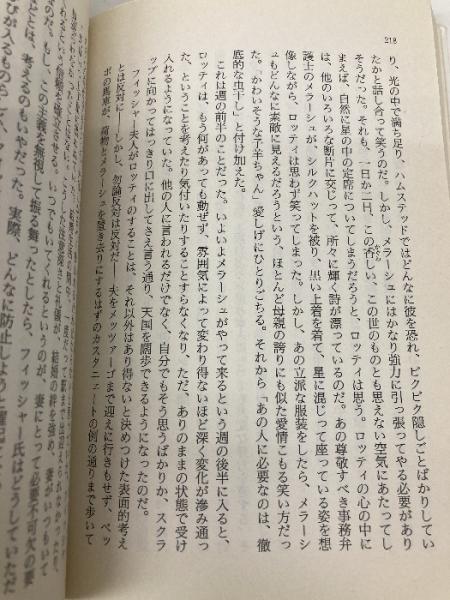 218
り、光の中で満ち足り、ハムステッドではどんなに彼を恐れ、ビクビク隠しごとばかりしてい
たかと話し合って笑うのだ。しかし、メラーシュにはかなり強力に引っ張ってやる必要があり
そうだった。それも、一日か二日、この香しい、この世のものとも思えない空気にあたってし
まえば、自然に星の中の定席についてしまうだろうと、ロッティは思う。ロッティの心の中に
は、他のいろいろな断片に交じって、所々に輝く詩が漂っているのだ。あの尊敬すべき事務弁
護士のメラーシュが、シルクハットを被り、黒い上着を着て、星に混じって座っている姿を想
像しながら、ロッティは思わず笑ってしまった。しかし、あの立派な服装をしたら、メラーシ
ュもどんなに素敵に見えるだろうという、ほとんど母親の誇りにも似た愛情こもる笑い方だっ
た。「かわいそうな子羊ちゃん」愛しげにひとりごちる。それから「あの人に必要なのは、徹
底的な虫干し」と付け加えた。
これは週の前半のことだった。いよいよメラーシュがやって来るという週の後半に入ると、
ロッティは、もう何があっても動ぜず、雰囲気によって変わり得ないほど深く変化が滲み通っ
た、ということを考えたり気付いたりすることすらなくなり、ただ、ありのままの状態で受け
入れるようになっていた。他の人に言われるだけでなく、自分でもそう思うばかりか、スクラ
ップに向かってはっきり口に出してさえ言う通り、天国を闊歩できるようになったのだ。
フィッシャー夫人がロッティのすることは、それ以外はあり得ないと決めつけた表面的考え
とは反対に――しかし、勿論反対は反対だ――夫をメッツァーゴまで迎えに行きもせず、ベッ
ポの馬車が、荷物とメラーシュを置き去りにするはずのカスタニェートの例の通りまで歩いて